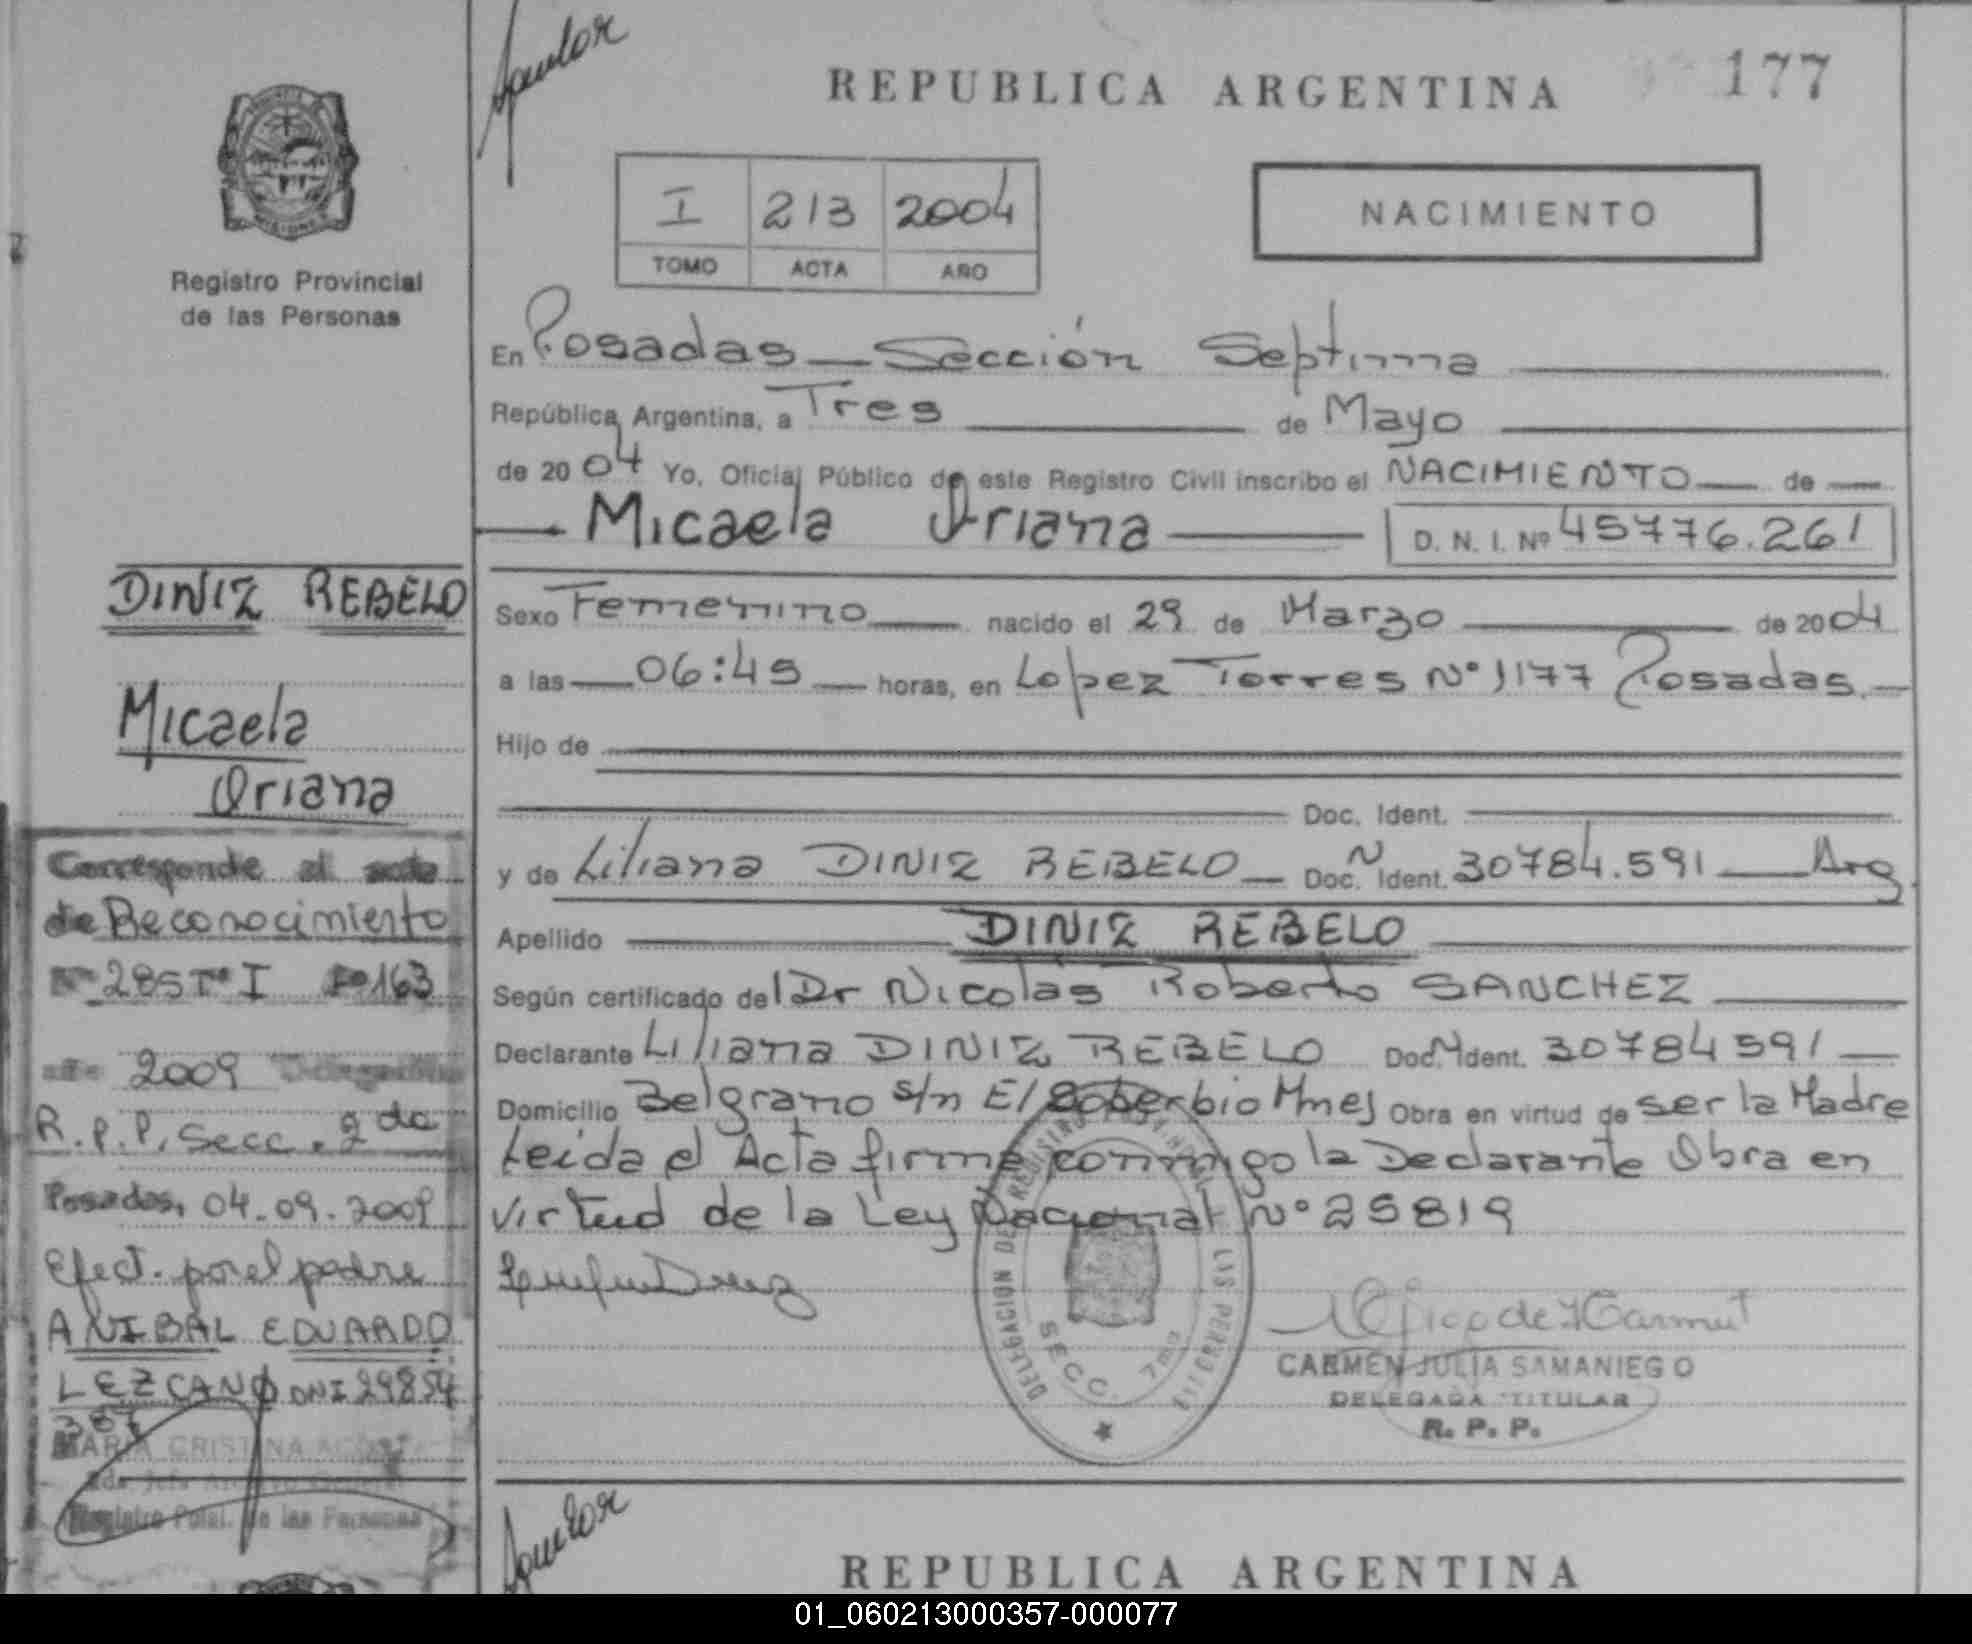 REPUBLICA ARGENTINA
177
Registro Provincial
de las Personas
I 213 2004
TOMO ACTA AÑO
NACIMIENTO
En Posadas Sección Septima
República Argentina, a Tres de Mayo
de 2004 Yo, Oficial Público de este Registro Civil inscribo el NACIMIENTO de
Micaela Oriana D. N. I. Nº 45776.261
Sexo Femenino nacido el 29 de Marzo de 2004
a las 06:45 horas, en Lopez Torres Nº 1177 Posadas.
Hijo de
Doc. Ident.
y de Liliana DINIZ REBELO Doc. N Ident. 30784.591 Arg
Apellido DINIZ REBELO
Según certificado del Dr Nicolas Roberto SANCHEZ
Declarante Liliana DINIZ REBELO Doc. N Ident. 30784591
Domicilio Belgrano s/n El Soberbio Mnes Obra en virtud de ser la Madre
Leida el Acta firma conmigo la Declarante Obra en
virtud de la Ley Nacional Nº 25819
SECC. 7ma
CARMEN JULIA SAMANIEGO
DELEGADA TITULAR
R. P. P.
DINIZ REBELO
Micaela
Oriana
Corresponde al acta
de Reconocimiento
Nº 285 Tº I Fº 163
año 2009
R.P.P. Secc. 2da
Posadas, 04.09.2009
Efect. por el padre
ANIBAL EDUARDO
LEZCANO DNI 29854
387
MARIA CRISTINA
Registro Pcial. de las Personas
REPUBLICA ARGENTINA
01_060213000357-000077